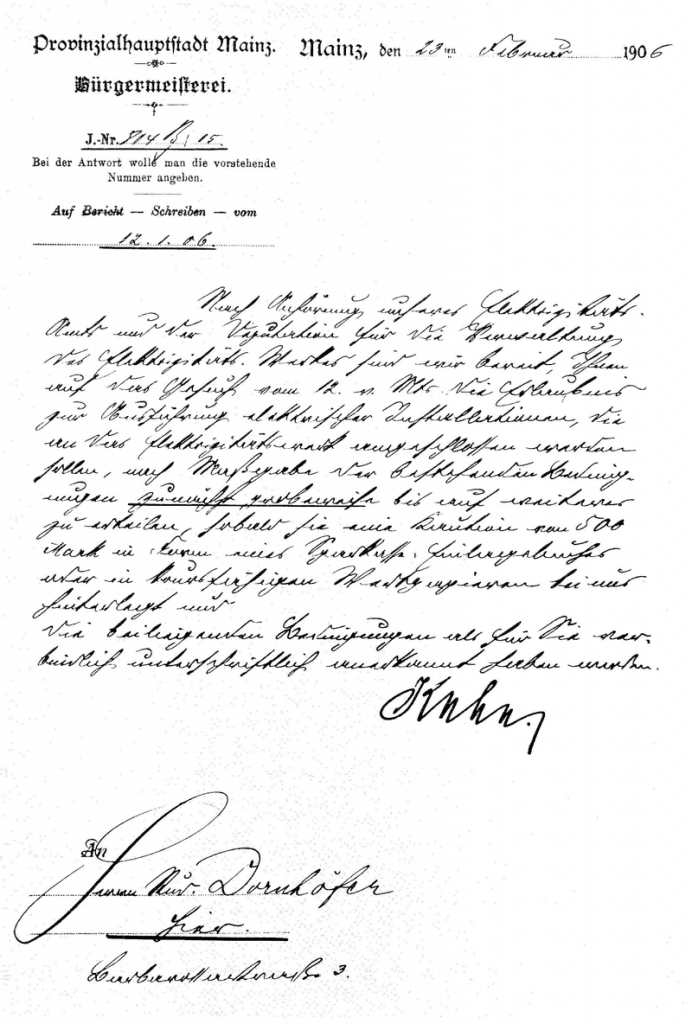 Provinzialhauptstadt Mainz.
Mainz, den 23ten Februar 1906
Bürgermeisterei.
J.-Nr. 814 B/15.
Bei der Antwort wolle man die vorstehende
Nummer angeben.
Auf Bericht — Schreiben — vom
12.1.06.
Nach Anhörung unseres Elektrizitäts-
Amts und der Deputation für die Verwaltung
des Elektrizitäts-Werkes sind wir bereit, Ihnen
auf das Gesuch vom 12. v. Mts. die Erlaubnis
zur Ausführung elektrischer Installationen, die
an das Elektrizitätswerk angeschlossen werden
sollen, nach Maßgabe der bestehenden Beding-
ungen zunächst probeweise bis auf weiteres
zu erteilen, sobald sie eine Kaution von 500
Mark in Form eines Sparkasse-Einlagebuches
oder in kursfähigen Wertpapieren bei uns
hinterlegt und
die beiliegenden Bedingungen als für Sie ver-
bindlich unterschriftlich anerkannt haben werden.
An
Herrn Rud. Dornhöfer
hier.
Barbarossastraße 3.